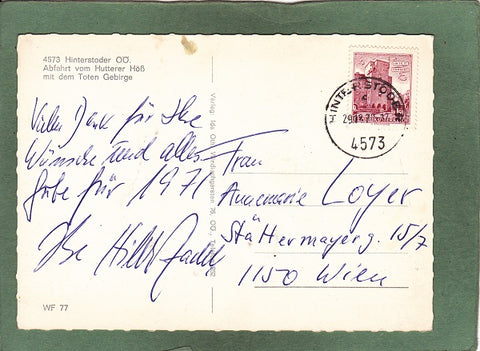 4573 Hinterstoder OÖ.
Abfahrt vom Hutterer Höß
mit dem Toten Gebirge
Vielen Dank für Ihre
Wünsche und alles
Gute für 1971
Ihr
Frau
Annemarie Loyer
Stättermayerg. 15/7
1150 Wien
HINTERSTODER
4573
WF 77